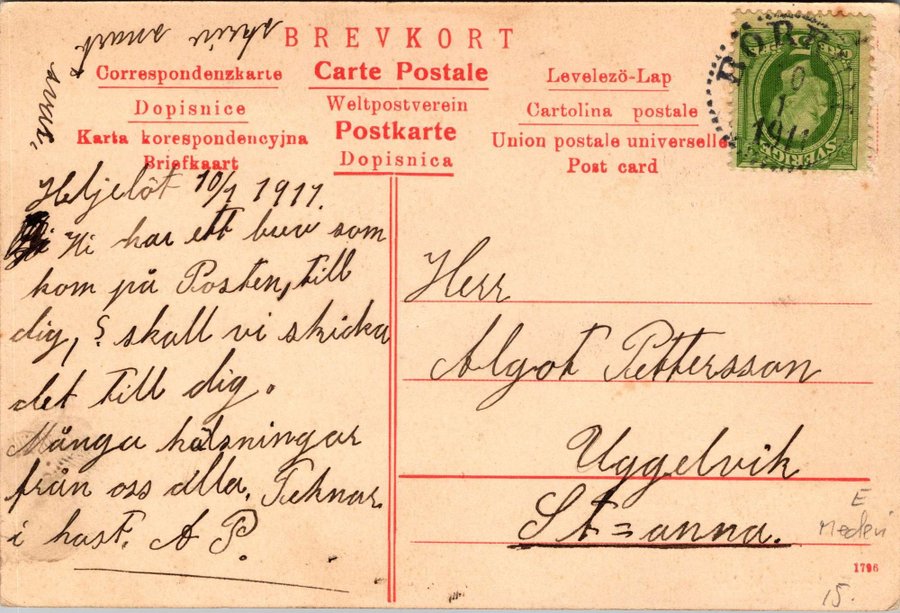 skriv snart
svar.
BREVKORT
Correspondenzkarte
Carte Postale
Levelező-Lap
Dopisnice
Weltpostverein
Cartolina postale
Karta korespondencyjna
Postkarte
Union postale universelle
Briefkaart
Dopisnica
Post card
SVERIGE
1911
10/1 1911.
Hi har ett brev som
kom på Posten, till
dig, ? skall vi skicka
det till dig.
Många hälsningar
från oss alla. Teknar
i hast. A P.
Herr
Algot Pettersson
Uggelvik
St=anna.
E
Medevi
1796
15.